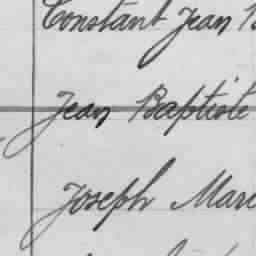 Constant Jean B
Jean Baptiste
Joseph Mar